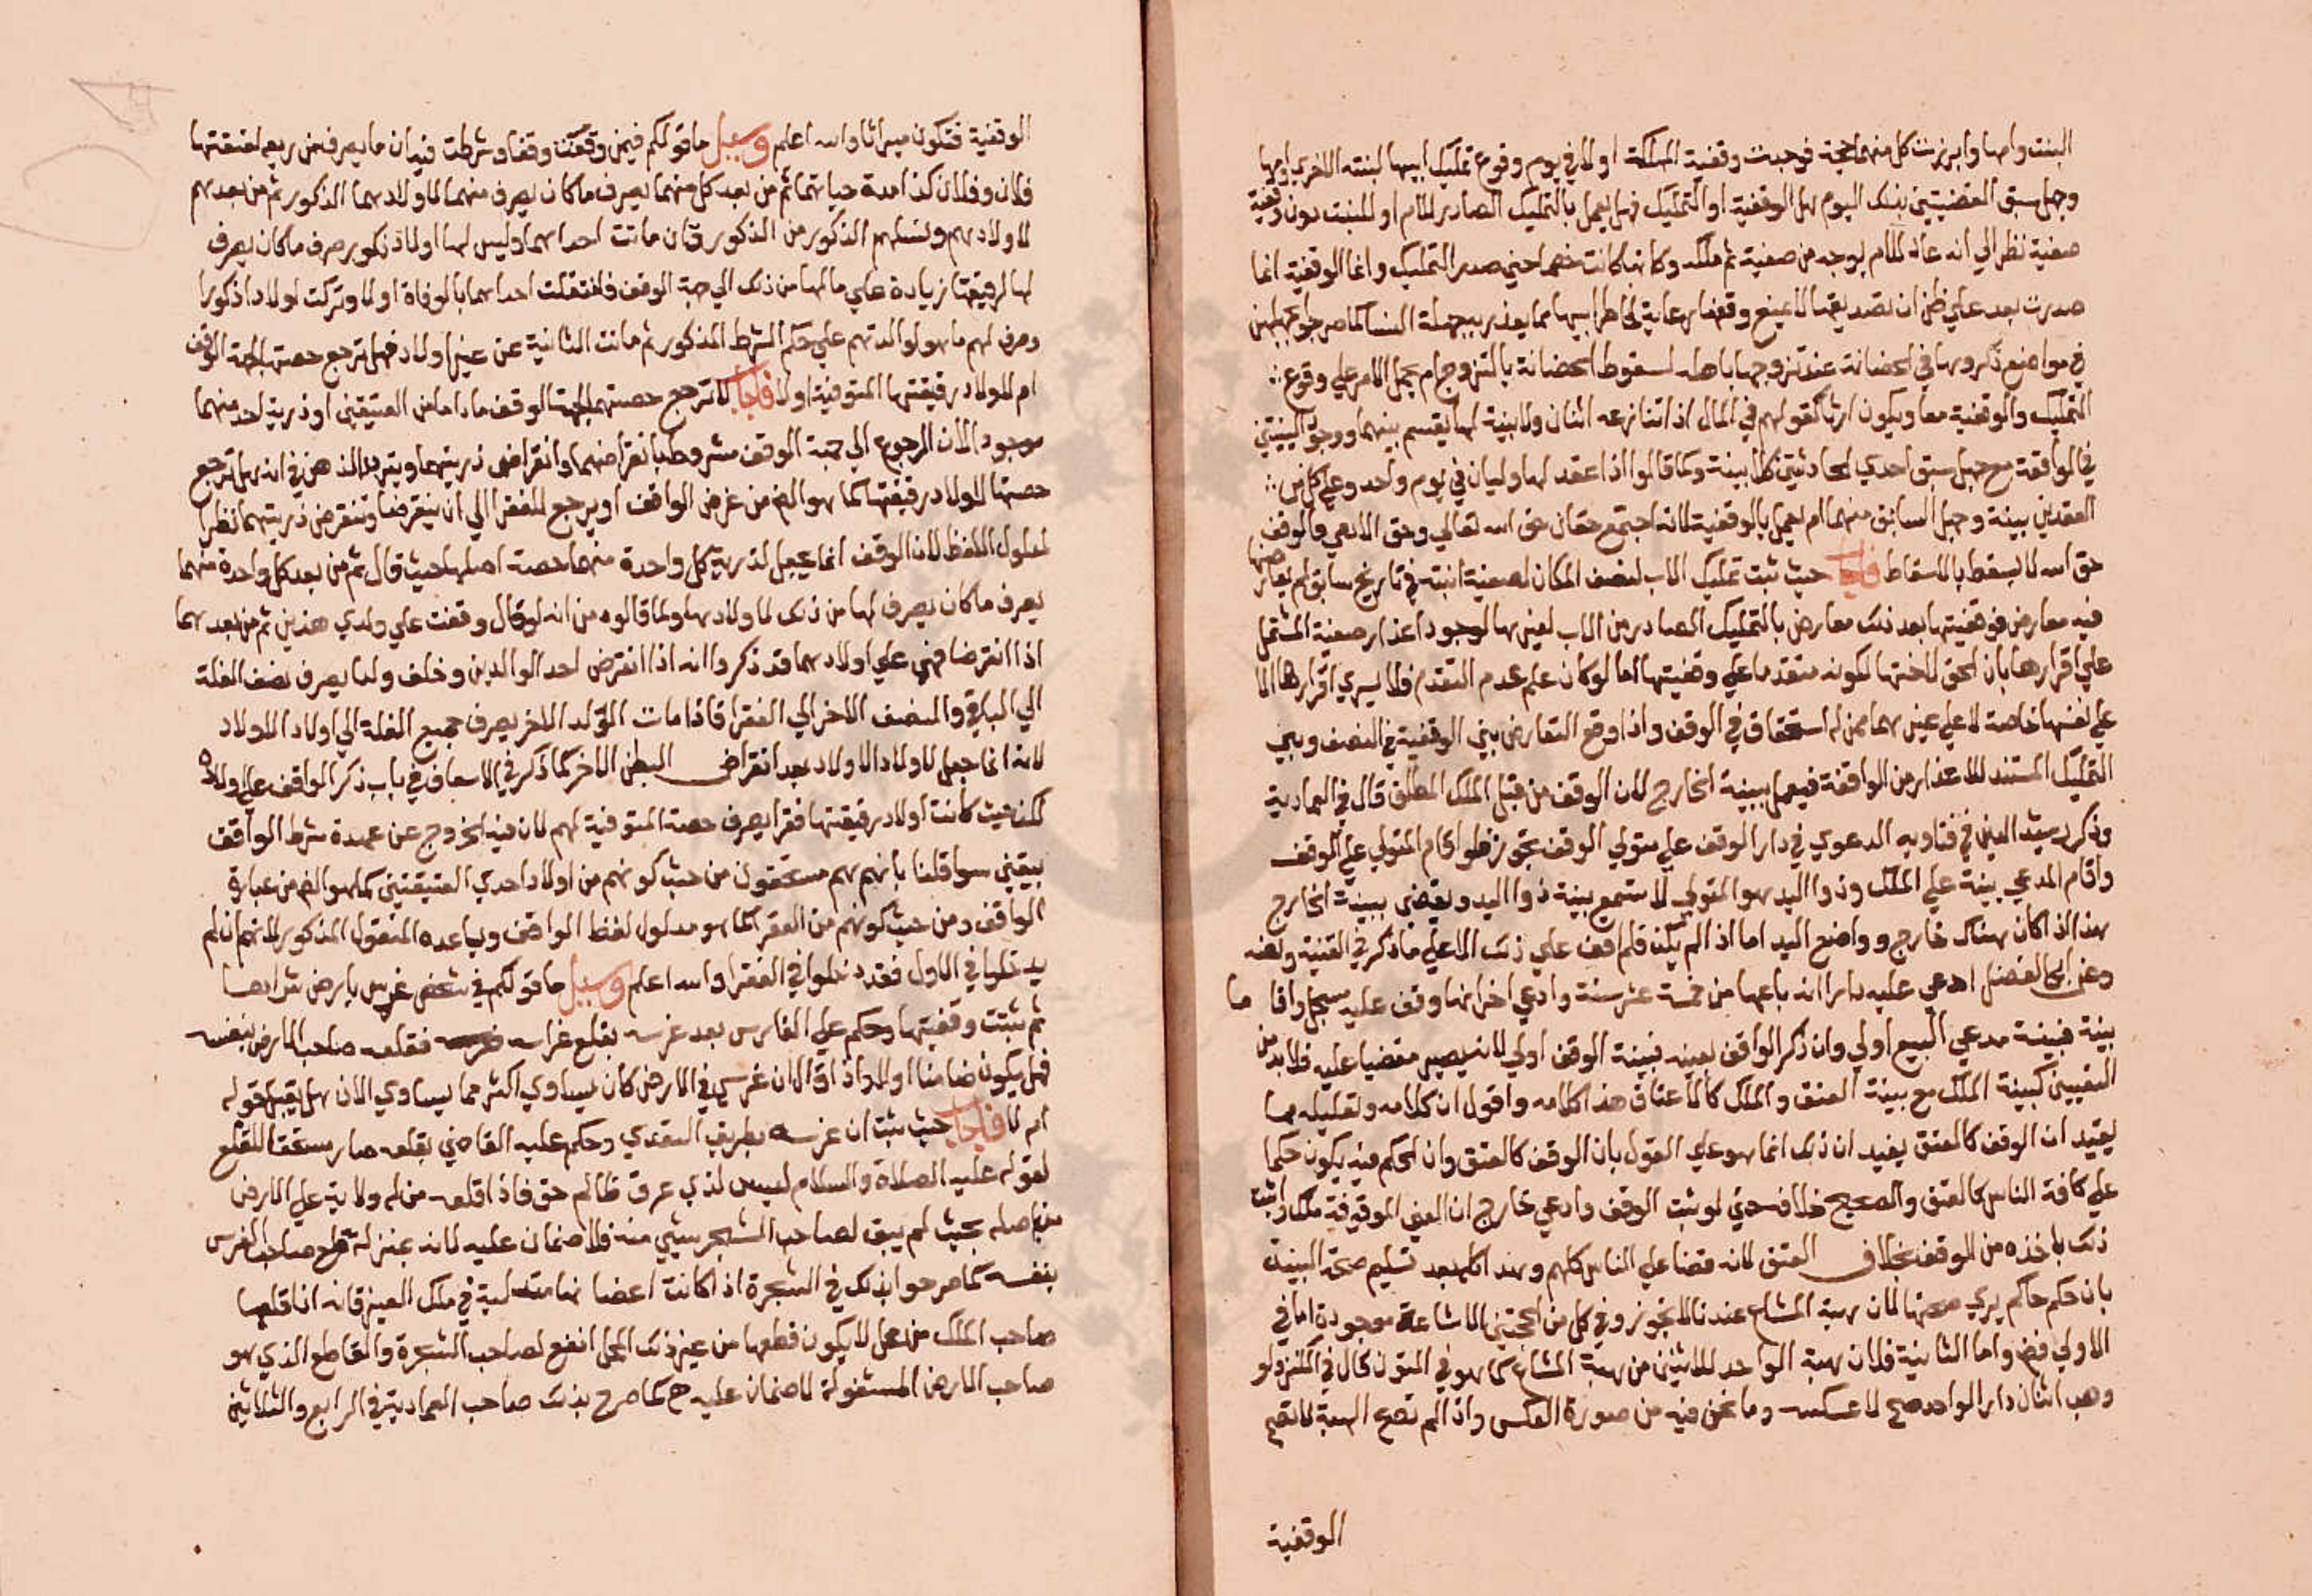 البنت وامها وابرزت كل منهما حجة فوجدت وقفية المملكة اولا في يوم وقوع تمليك ابيها لبنته الاخرى وامها
وجهل سبق القضيتين بذلك اليوم هل الوقفية او التمليك فهل يعمل بالتمليك الصادر للام او للبنت دون وقفية
صفية نظرا الي انه عاد للام بوجه من صفية ثم ملكه وكانت خصما حين صدر التمليك وانما الوقفية انما
صدرت بعد علي ظن ان تصديقها لا يمنع وقفها رعاية لخاطر ابيها مما يعذر بجهله النسا كما صرحوا بجهلهن
في مواضع ذكروها في الحضانة عند تزوجها باهله لسقوط الحضانة بالتزوج ام يحمل الامر علي وقوع
التمليك والوقفية معا ويكون ارثا كقولهم في المال اذا تنازعه اثنان ولا بينة لهما يقسم بينهما ووجود البينتين
في الواقعة مع جهل سبق احدي الحادثتين كلا بينة وكما قالوا اذا عقد لها وليان في يوم واحد وعلي كل من
العقدين بينة وجهل السابق منهما ام يعمل بالوقفية لانه اجتمع حقان حق الله تعالي وحق الادمي والوقف
حق الله لا يسقط بالاسقاط فاجاب حيث ثبت تمليك الاب لنصف المكان لصفية ابنته في تاريخ سابق لم يعارضها
فيه معارض فوقفيتها بعد ذلك معارض بالتمليك الصادر من الاب لغيرها لوجود اعذار صفية المشتمل
علي اقرارها بان الحق لاختها لكونه متقدما علي وقفيتها اما لو كان علم عدم التقدم فلا يسري اقرارها الا
علي نفسها خاصة لا علي غيرهما ممن له استحقاق في الوقف واذا وقع التعارض بين الوقفية في النصف وبين
التمليك المستند للاعذار من الواقفة فيعمل ببينة الخارج لان الوقف من قبل الملك المطلق قال في العمادية
وذكر رشيد الدين في فتاويه الدعوي في دار الوقف علي متولي الوقف تجوز فلو اقام المتولي علي الوقف
واقام المدعي بينة علي الملك وذوا اليد هو المتولي لا تسمع بينة ذوا اليد ويقضى ببينة الخارج
هذا اذا كان هناك خارج وواضع اليد اما اذا لم يكن فلم اقف علي ذلك الا علي ما ذكر في القنية ونصه
وعن ابي الفضل ادعي عليه دارا انه باعها من خمسة عشر سنة وادعي اخر انها وقف عليه مسجل واقاما
بينة فبينة مدعي البيع اولي وان ذكر الواقف بعينه فبينة الوقف اولي لانه يصير مقضيا عليه فلا بد من
التعيين كبينة الملك مع بينة العتق والملك كالاعتاق هذا كلامه واقول ان كلامه وتعليله بما
يفيد ان الوقف كالعتق يفيد ان ذلك انما هو علي القول بان الوقف كالعتق وان الحكم فيه يكون حكما
علي كافة الناس كالعتق والصحيح خلافه حتي لو ثبت الوقف وادعي خارج ان العين الموقوفة ملكه واثبت
ذلك ياخذه من الوقف بخلاف العتق لانه قضا علي الناس كلهم وهذا كله بعد تسليم صحة البينة
بان حكم حاكم يري صحتها لان هبة المشاع عندنا لا تجوز وفي كل من الحجتين الاشاعة موجودة اما في
الاولي فض واما الثانية فلان هبة الواحد للاثنين من هبة المشاع كما هو في المتون قال في الكنز ولو
وهب اثنان دارا لواحد صح لا عكسه وما نحن فيه من صورة العكس واذا لم تصح الهبة لا تصح
الوقفية
الوقفية فتكون ميراثا والله اعلم وسيل ما قولكم فيمن وقفت وقفا وشرطت فيه ان ما يصرف من ريعه لعتقتها
فلان وفلان كذا مدة حياتهما ثم من بعد كل منهما يصرف ما كان يصرف منهما لاولادهما الذكور ثم من بعدهم
لاولادهم ونسلهم الذكور من الذكور فان ماتت احداهما وليس لها اولاد ذكور صرف ما كان يصرف
لها لرفيقتها زيادة علي مالها من ذلك الي جهة الوقف فانتقلت احداهما بالوفاة اولا وتركت اولادا ذكورا
وصرف لهم ما هو لوالدتهم علي حكم الشرط المذكور ثم ماتت الثانية عن غير اولاد فهل ترجع حصتها لجهة الوقف
ام لاولاد رفيقتها المتوفية اولا فاجاب لا ترجع حصتها لجهة الوقف ما دام من العتيقتين او ذرية احد منهما
موجودا لان الرجوع الي جهة الوقف مشروط بانقراضهما وانقراض ذريتهما ويتردد الذهن في انه هل ترجع
حصتها لاولاد رفيقتها كما هو الض من غرض الواقف او يرجع للفقرا الي ان ينقرضا وتنقرض ذريتهما نظرا
لمدلول اللفظ لان الواقف انما يجعل لذرية كل واحدة منهما حصة اصلها حيث قال ثم من بعد كل واحدة منهما
يصرف ما كان يصرف لها من ذلك لاولادها ولما قالوه من انه لو قال وقفت علي ولدي هذين ثم من بعدهما
اذا انقرضا فهي علي اولادهما فقد ذكروا انه اذا انقرض احد الوالدين وخلف ولدا يصرف نصف الغلة
الي الباقي والنصف الاخر الي الفقرا فاذا مات الولد الاخر يصرف جميع الغلة الي اولاد الاولاد
لانه انما جعل لاولاد الاولاد بعد انقراض البطن الاخر كما ذكر في الاسعاف في باب ذكر الواقف علي اولاده
لكن حيث كانت اولاد رفيقتها فقرا يصرف حصة المتوفية لهم لان فيه الخروج عن عهدة شرط الواقف
بيقين سوا قلنا بانهم هم مستحقون من حيث كونهم من اولاد احدي العتيقتين كما هو الض من عبارة
الواقف ومن حيث كونهم من الفقرا كما هو مدلول لفظ الواقف ويساعده المنقول المذكور لانهم ان لم
يدخلوا في الاول فقد دخلوا في الفقرا والله اعلم وسيل ما قولكم في شخص غرس بارض شراها
ثم ثبتت وقفيتها وحكم علي الغارس بعد غرسه بقلع غراسه فقلعه صاحب الارض بنفسه
فهل يكون ضامنا اولا واذا قال ان غرسي في الارض كان يساوي اكثر مما يساوي الان هل يقبل قوله
ام لا فاجاب حيث ثبت ان غرسه بطريق التعدي وحكم عليه القاضي بقلعه صار مستحقا للقلع
لقوله عليه الصلاة والسلام ليس لذي عرق ظالم حق فاذا قلعه من له ولاية علي الارض
من اصله بحيث لم يبق لصاحب الشجر شيي منه فلا ضمان عليه لانه بمنزلة قلع صاحب الغرس
بنفسه كما صرحوا بذلك في الشجرة اذا كانت اغصانها متدلية في ملك الغير فانه اذا قلعها
صاحب الملك من محل لا يكون قطعها من غير ذلك المحل انفع لصاحب الشجرة والقاطع الذي هو
صاحب الارض المشغولة لا ضمان عليه ح كما صرح بذلك صاحب العمادية في الرابع والثلاثين